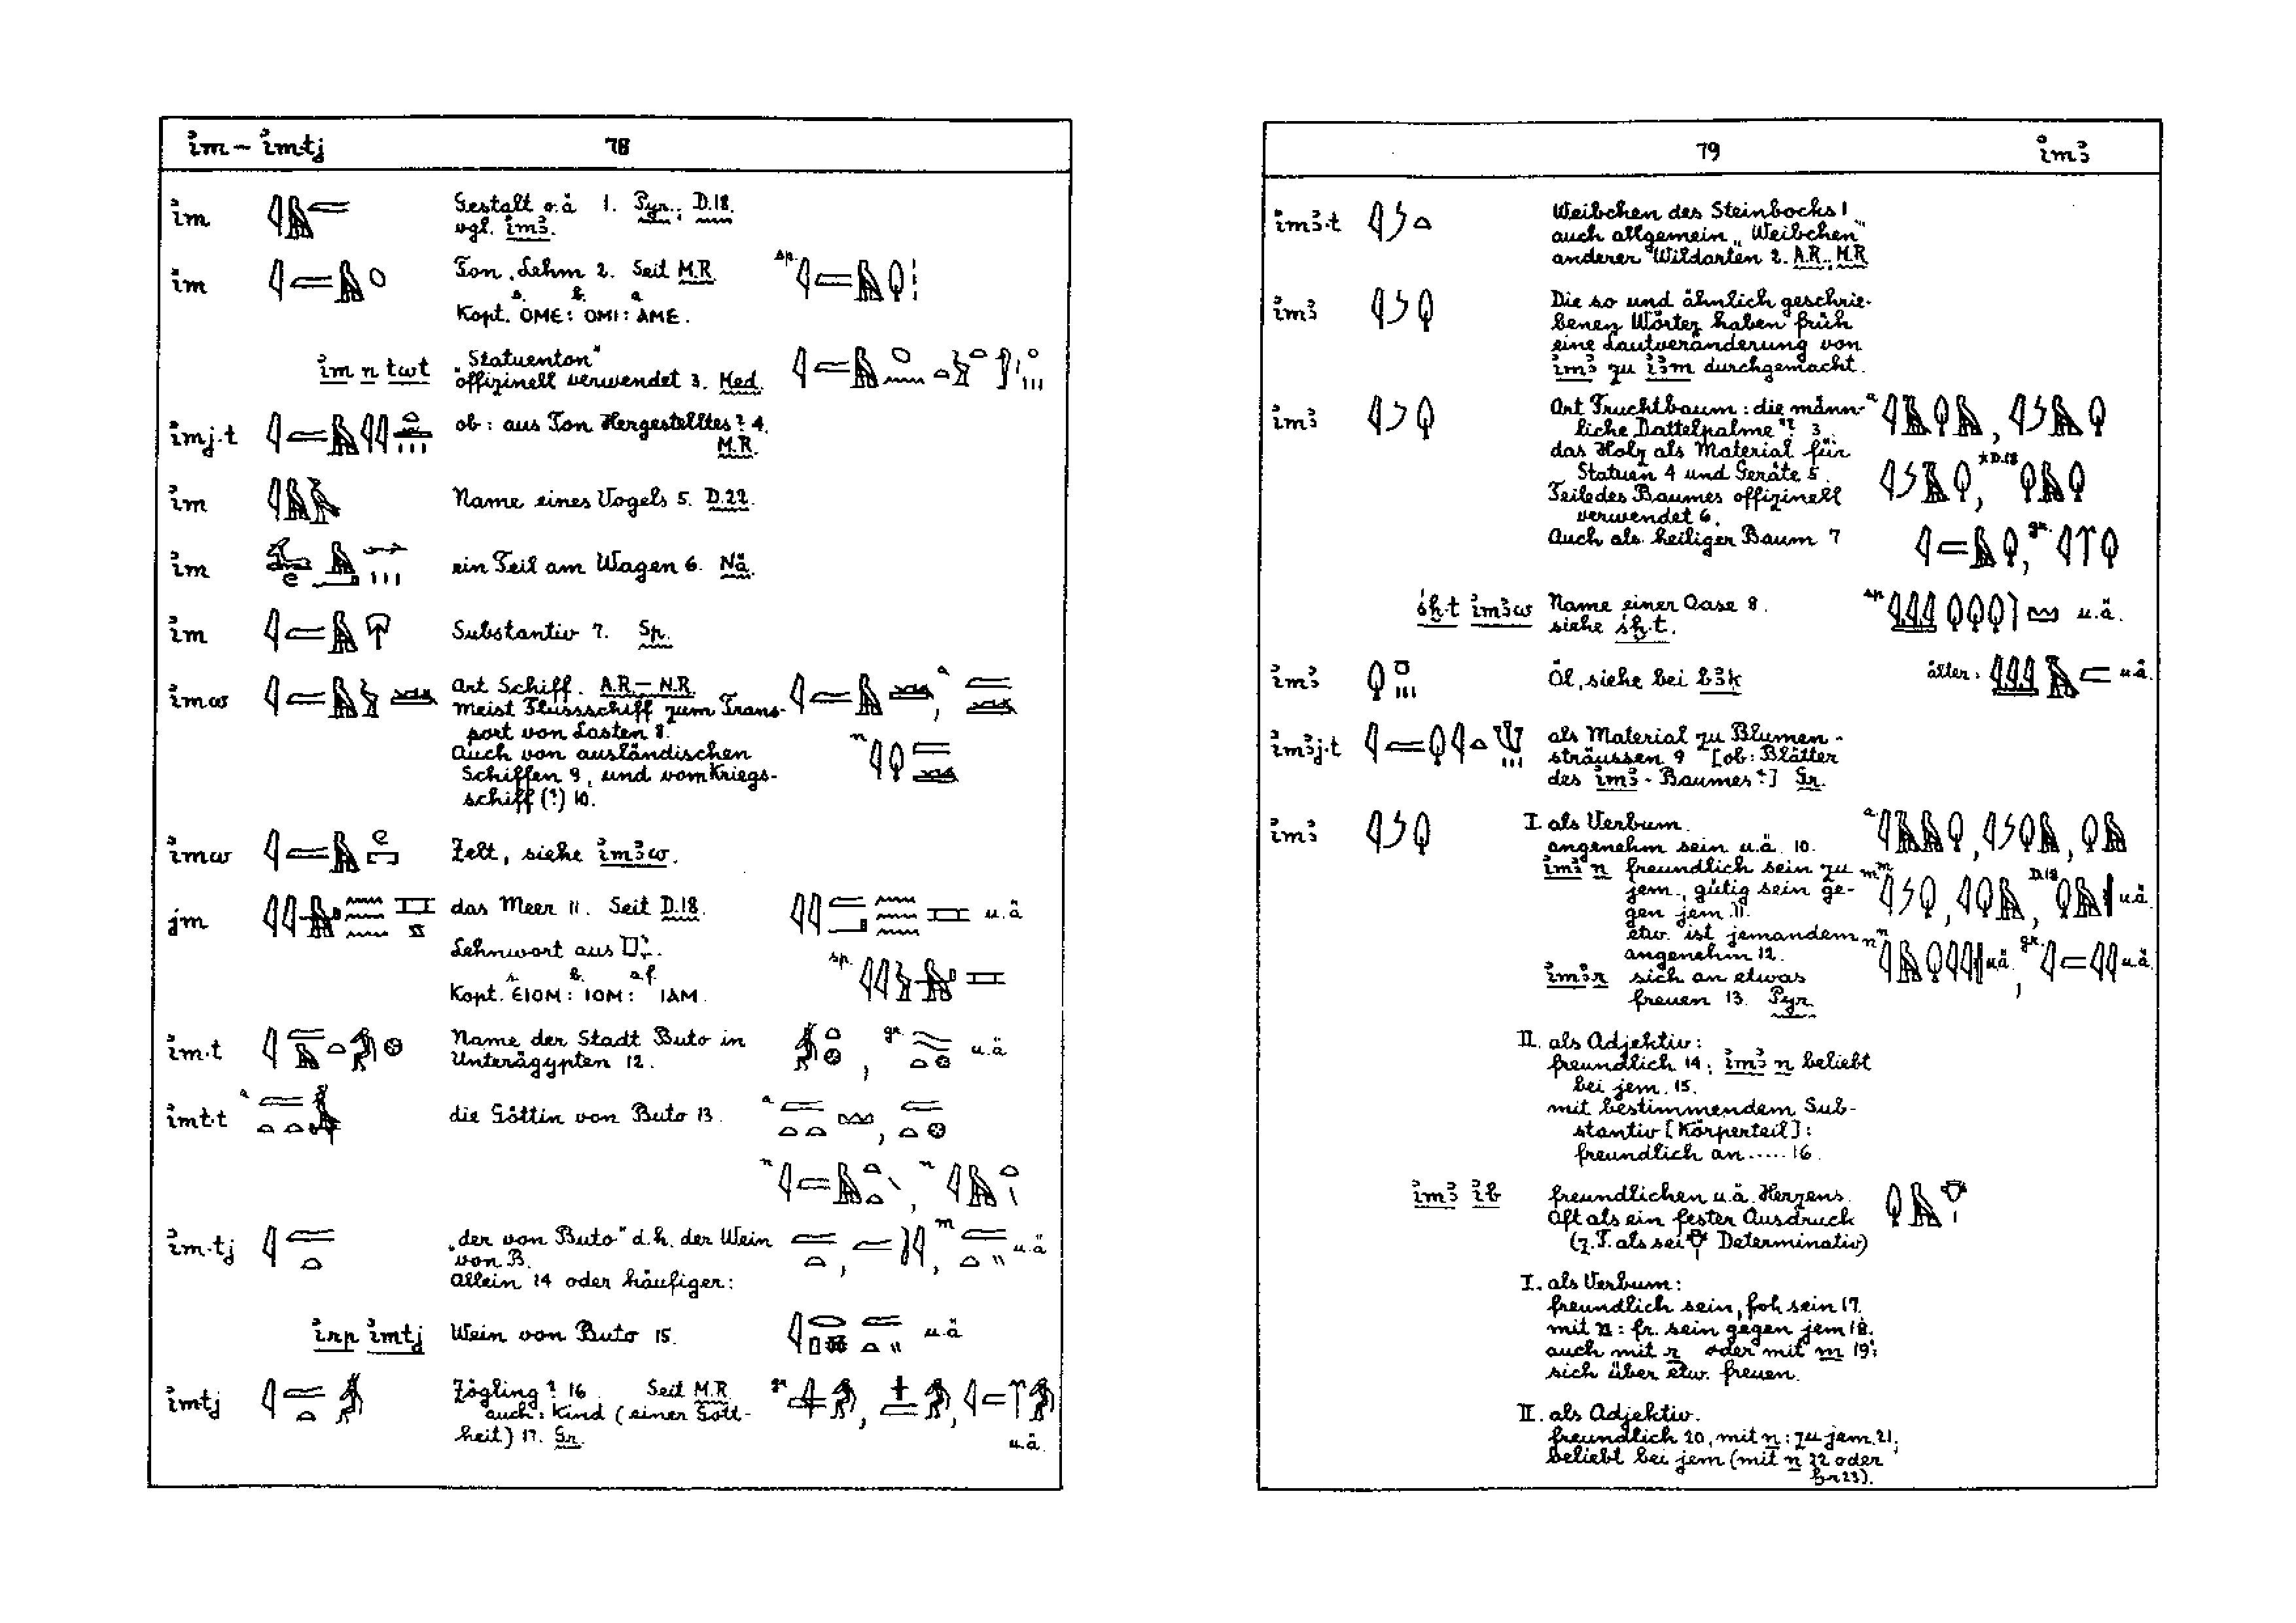 i҆m – i҆mtj 78
i҆m Gestalt o.ä 1. Pyr.; D.18.
vgl. i҆mꜣ.
i҆m Ton, Lehm 2. Seit M.R. sp.
s. b. a.
Kopt. OME: OMI: AME.
i҆m n twt „Statuenton"
offizinell verwendet 3. Med.
i҆mj.t ob: aus Ton Hergestelltes? 4.
M.R.
i҆m Name eines Vogels 5. D.22.
i҆m ein Teil am Wagen 6. Nä.
i҆m Substantiv 7. Sp.
i҆mw Art Schiff. A.R – N.R. a
Meist Flussschiff zum Trans-
port von Lasten 8.
Auch von ausländischen n
Schiffen 9, und vom Kriegs-
schiff (?) 10.
i҆mw Zelt, siehe i҆mꜣw.
jm das Meer 11. Seit D.18. u.ä
Lehnwort aus ים.
s. b. a.f. sp.
Kopt. EIOM: IOM: IAM.
i҆m.t Name der Stadt Buto in gr. u.ä
Unterägypten 12.
i҆mt.t a die Göttin von Buto 13. a
n n
i҆m.tj „der von Buto" d.h. der Wein m u.ä
von B.
allein 14 oder häufiger:
i҆rp i҆mtj Wein von Buto 15. u.ä
i҆mtj Zögling? 16 Seit M.R. gr.
auch: Kind (einer Gott-
heit) 17. Gr. u.ä.
79 i҆mꜣ
i҆mꜣ.t Weibchen des Steinbocks 1
auch allgemein „Weibchen"
anderer Wildarten 2. A.R., M.R
i҆mꜣ Die so und ähnlich geschrie-
benen Wörter haben früh
eine Lautveränderung von
i҆mꜣ zu i҆ꜣm durchgemacht.
i҆mꜣ Art Fruchtbaum: die männ- a
liche Dattelpalme? 3
das Holz als Material für
Statuen 4 und Geräte 5. *D.18
Teile des Baumes offizinell
verwendet 6.
Auch als heiliger Baum 7 gr.
śḫ.t i҆mꜣw Name einer Oase 8. sp. u.ä.
siehe śḫ.t.
i҆mꜣ Öl, siehe bei bꜣk älter: u.ä.
i҆mꜣj.t als Material zu Blumen-
sträussen 9 [ob: Blätter
des i҆mꜣ-Baumes?] Gr.
i҆mꜣ I. als Verbum. a
angenehm sein u.ä. 10.
i҆mꜣ n freundlich sein zu m m
jem., gütig sein ge- D.18 u.ä.
gen jem. 11.
etw. ist jemandem n n u.ä. gr. u.ä.
angenehm 12.
i҆mꜣ r sich an etwas
freuen 13. Pyr.
II. als Adjektiv:
freundlich 14; i҆mꜣ n beliebt
bei jem. 15.
mit bestimmendem Sub-
stantiv [Körperteil]:
freundlich an ..... 16.
i҆mꜣ i҆b freundlichen u.ä. Herzens.
Oft als ein fester Ausdruck
(z.T. als sei Determinativ)
I. als Verbum:
freundlich sein, froh sein 17.
mit n: fr. sein gegen jem 18.
auch mit r oder mit m 19:
sich über etw. freuen.
II. als Adjektiv.
freundlich 20, mit n: zu jem. 21;
beliebt bei jem (mit n 22 oder
ḫr 23).